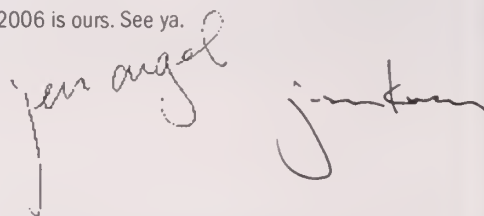 2006 is ours. See ya.
jen angel